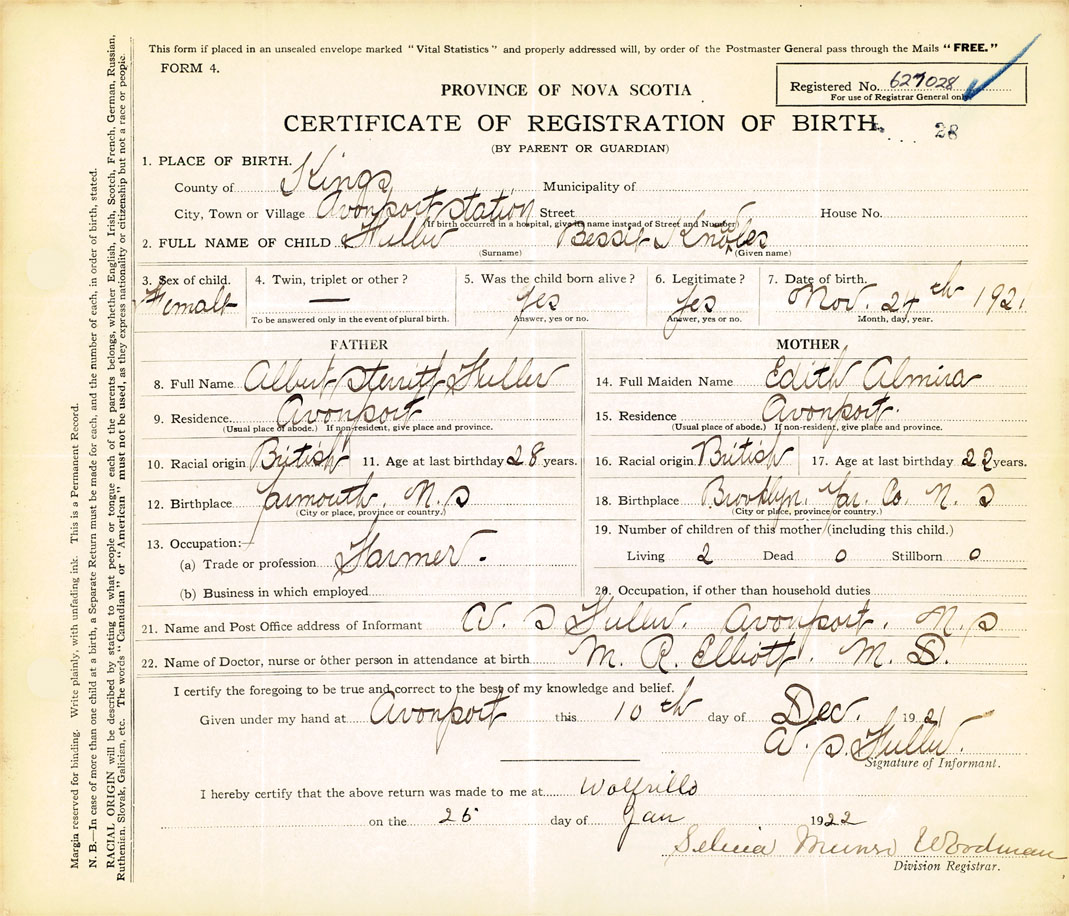 This form if placed in an unsealed envelope marked "Vital Statistics" and properly addressed will, by order of the Postmaster General pass through the Mails "FREE."
FORM 4.
Registered No. 627028
For use of Registrar General only
PROVINCE OF NOVA SCOTIA
CERTIFICATE OF REGISTRATION OF BIRTH.
28
(BY PARENT OR GUARDIAN)
1. PLACE OF BIRTH.
County of Kings Municipality of
City, Town or Village Avonport Station Street House No.
(If birth occurred in a hospital, give its name instead of Street and Number)
2. FULL NAME OF CHILD Fuller Bessie Knowles
(Surname) (Given name)
3. Sex of child. 4. Twin, triplet or other? 5. Was the child born alive? 6. Legitimate? 7. Date of birth.
Female — Yes Yes Nov. 24th 1921
To be answered only in the event of plural birth. Answer, yes or no. Answer, yes or no. Month, day, year.
FATHER MOTHER
8. Full Name Albert Sterritt Fuller 14. Full Maiden Name Edith Almira
9. Residence Avonport 15. Residence Avonport.
(Usual place of abode.) If non-resident, give place and province. (Usual place of abode.) If non-resident, give place and province.
10. Racial origin British 11. Age at last birthday 28 years. 16. Racial origin British 17. Age at last birthday 22 years.
12. Birthplace Yarmouth. N. S 18. Birthplace Brooklyn. Yar. Co. N. S
(City or place, province or country.) (City or place, province or country.)
13. Occupation:— 19. Number of children of this mother (including this child.)
(a) Trade or profession Farmer. Living 2 Dead 0 Stillborn 0
(b) Business in which employed 20. Occupation, if other than household duties
21. Name and Post Office address of Informant A. S Fuller. Avonport. N. S
22. Name of Doctor, nurse or other person in attendance at birth M. R. Elliott. M. D.
I certify the foregoing to be true and correct to the best of my knowledge and belief.
Given under my hand at Avonport this 10th day of Dec. 1921
A. S. Fuller.
Signature of Informant.
I hereby certify that the above return was made to me at Wolfville
on the 25 day of Jan 1922
Selina Munro Woodman
Division Registrar.
Margin reserved for binding. Write plainly, with unfading ink. This is a Permanent Record.
N. B.—In case of more than one child at a birth, a Separate Return must be made for each, and the number of each, in order of birth, stated.
RACIAL ORIGIN will be described by stating to what people or tongue each of the parents belongs, whether English, Irish, Scotch, French, German, Russian,
Ruthenian, Slovak, Galician, etc. The words "Canadian" or "American" must not be used, as they express nationality or citizenship but not a race or people.